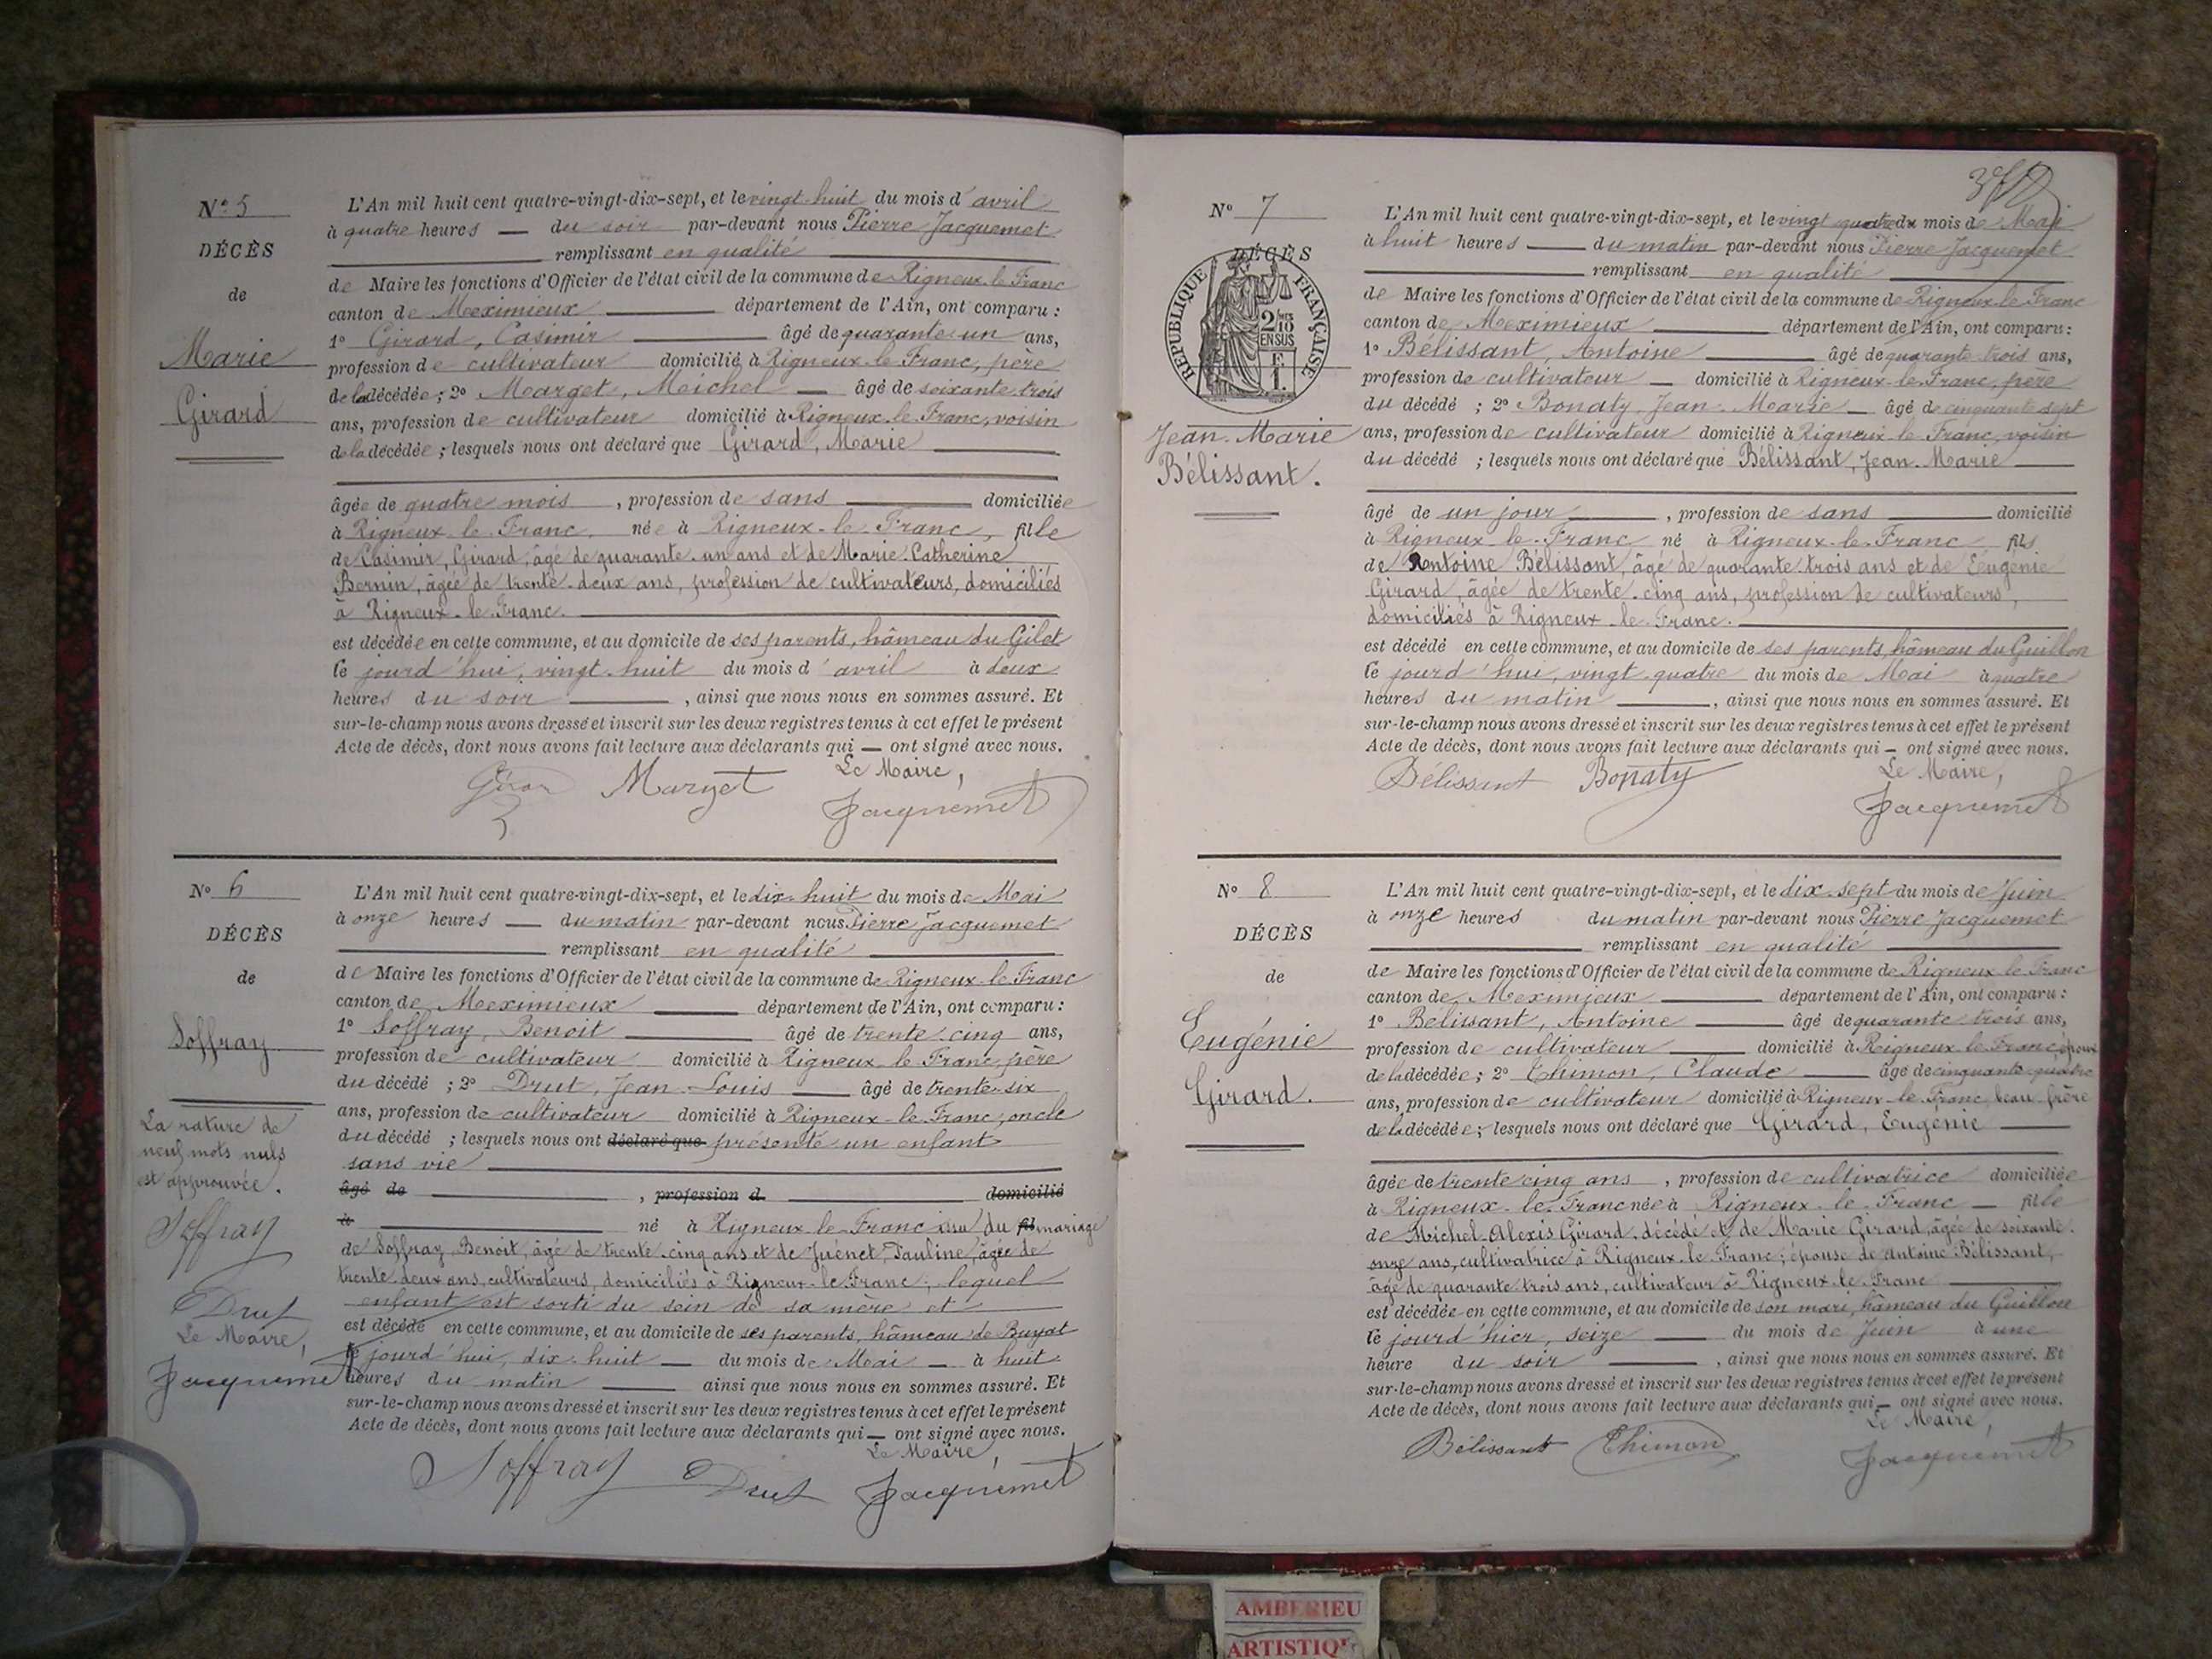 N° 5
DÉCÈS
de
Marie
Girard
L'An mil huit cent quatre-vingt-dix-sept, et le vingt huit du mois d'avril
à quatre heures du soir par-devant nous Pierre Jacquemet
remplissant en qualité
de Maire les fonctions d'Officier de l'état civil de la commune de Rigneux-le-Franc
canton de Meximieux département de l'Ain, ont comparu :
1° Girard, Casimir âgé de quarante-un ans,
profession de cultivateur domicilié à Rigneux-le-Franc, père
de la décédée ; 2° Marget, Michel âgé de soixante-trois
ans, profession de cultivateur domicilié à Rigneux-le-Franc, voisin
de la décédée ; lesquels nous ont déclaré que Girard, Marie
âgée de quatre mois, profession de sans domiciliée
à Rigneux-le-Franc née à Rigneux-le-Franc, fille
de Casimir, Girard, âgé de quarante-un ans et de Marie Catherine
Bernin, âgée de trente-deux ans, profession de cultivateurs, domiciliés
à Rigneux-le-Franc.
est décédée en cette commune, et au domicile de ses parents, hâmeau du Gilet
le jourd'hui, vingt-huit du mois d'avril à deux
heures du soir, ainsi que nous nous en sommes assuré. Et
sur-le-champ nous avons dressé et inscrit sur les deux registres tenus à cet effet le présent
Acte de décès, dont nous avons fait lecture aux déclarants qui — ont signé avec nous.
Le Maire,
Girard Marget Jacquemet
N° 6
DÉCÈS
de
Soffray
La rature de
neuf mots nuls
est approuvée.
Soffray
Drut
Le Maire,
Jacquemet
L'An mil huit cent quatre-vingt-dix-sept, et le dix-huit du mois de Mai
à onze heures du matin par-devant nous Pierre Jacquemet
remplissant en qualité
de Maire les fonctions d'Officier de l'état civil de la commune de Rigneux-le-Franc
canton de Meximieux département de l'Ain, ont comparu :
1° Soffray, Benoit âgé de trente-cinq ans,
profession de cultivateur domicilié à Rigneux-le-Franc, père
du décédé ; 2° Drut, Jean-Louis âgé de trente-six
ans, profession de cultivateur domicilié à Rigneux-le-Franc, oncle
du décédé ; lesquels nous ont déclaré que présenté un enfant
sans vie
âgé de , profession d domicilié
à né à Rigneux-le-Franc issu du fil mariage
de Soffray, Benoit, âgé de trente-cinq ans et de Juénet, Pauline, âgée de
trente-deux ans, cultivateurs, domiciliés à Rigneux-le-Franc, lequel
enfant est sorti du sein de sa mère et
est décédé en cette commune, et au domicile de ses parents, hâmeau de Buyat
le jourd'hui, dix-huit du mois de Mai à huit
heures du matin ainsi que nous nous en sommes assuré. Et
sur-le-champ nous avons dressé et inscrit sur les deux registres tenus à cet effet le présent
Acte de décès, dont nous avons fait lecture aux déclarants qui — ont signé avec nous.
Le Maire,
Soffray Drut Jacquemet
N° 7
DÉCÈS
RÉPUBLIQUE FRANÇAISE
2/10 EN SUS
Jean-Marie
Bélissant.
L'An mil huit cent quatre-vingt-dix-sept, et le vingt quatre du mois de Mai
à huit heures du matin par-devant nous Pierre Jacquemet
remplissant en qualité
de Maire les fonctions d'Officier de l'état civil de la commune de Rigneux-le-Franc
canton de Meximieux département de l'Ain, ont comparu :
1° Bélissant, Antoine âgé de quarante-trois ans,
profession de cultivateur domicilié à Rigneux-le-Franc, père
du décédé ; 2° Bonaty, Jean-Marie âgé de cinquante-sept
ans, profession de cultivateur domicilié à Rigneux-le-Franc, voisin
du décédé ; lesquels nous ont déclaré que Bélissant, Jean-Marie
âgé de un jour, profession de sans domicilié
à Rigneux-le-Franc né à Rigneux-le-Franc fils
de Antoine Bélissant, âgé de quarante-trois ans et de Eugénie
Girard, âgée de trente-cinq ans, profession de cultivateurs,
domiciliés à Rigneux-le-Franc.
est décédé en cette commune, et au domicile de ses parents, hâmeau du Guillon
le jourd'hui, vingt-quatre du mois de Mai à quatre
heures du matin, ainsi que nous nous en sommes assuré. Et
sur-le-champ nous avons dressé et inscrit sur les deux registres tenus à cet effet le présent
Acte de décès, dont nous avons fait lecture aux déclarants qui — ont signé avec nous.
Le Maire,
Bélissant Bonaty Jacquemet
N° 8
DÉCÈS
de
Eugénie
Girard.
L'An mil huit cent quatre-vingt-dix-sept, et le dix-sept du mois de Juin
à onze heures du matin par-devant nous Pierre Jacquemet
remplissant en qualité
de Maire les fonctions d'Officier de l'état civil de la commune de Rigneux-le-Franc
canton de Meximieux département de l'Ain, ont comparu :
1° Bélissant, Antoine âgé de quarante-trois ans,
profession de cultivateur domicilié à Rigneux-le-Franc, époux
de la décédée ; 2° Thimon, Claude âgé de cinquante-quatre
ans, profession de cultivateur domicilié à Rigneux-le-Franc, beau-frère
de la décédée ; lesquels nous ont déclaré que Girard, Eugénie
âgée de trente-cinq ans, profession de cultivatrice domiciliée
à Rigneux-le-Franc née à Rigneux-le-Franc — fille
de Michel-Alexis Girard, décédé et de Marie Girard, âgée de soixante-
onze ans, cultivatrice à Rigneux-le-Franc ; épouse de Antoine Bélissant,
âgé de quarante-trois ans, cultivateur à Rigneux-le-Franc
est décédée en cette commune, et au domicile de son mari, hâmeau du Guillon
le jourd'hier, seize du mois de Juin à une
heure du soir, ainsi que nous nous en sommes assuré. Et
sur-le-champ nous avons dressé et inscrit sur les deux registres tenus à cet effet le présent
Acte de décès, dont nous avons fait lecture aux déclarants qui — ont signé avec nous.
Le Maire,
Bélissant Thimon Jacquemet
AMBERIEU
ARTISTIQU